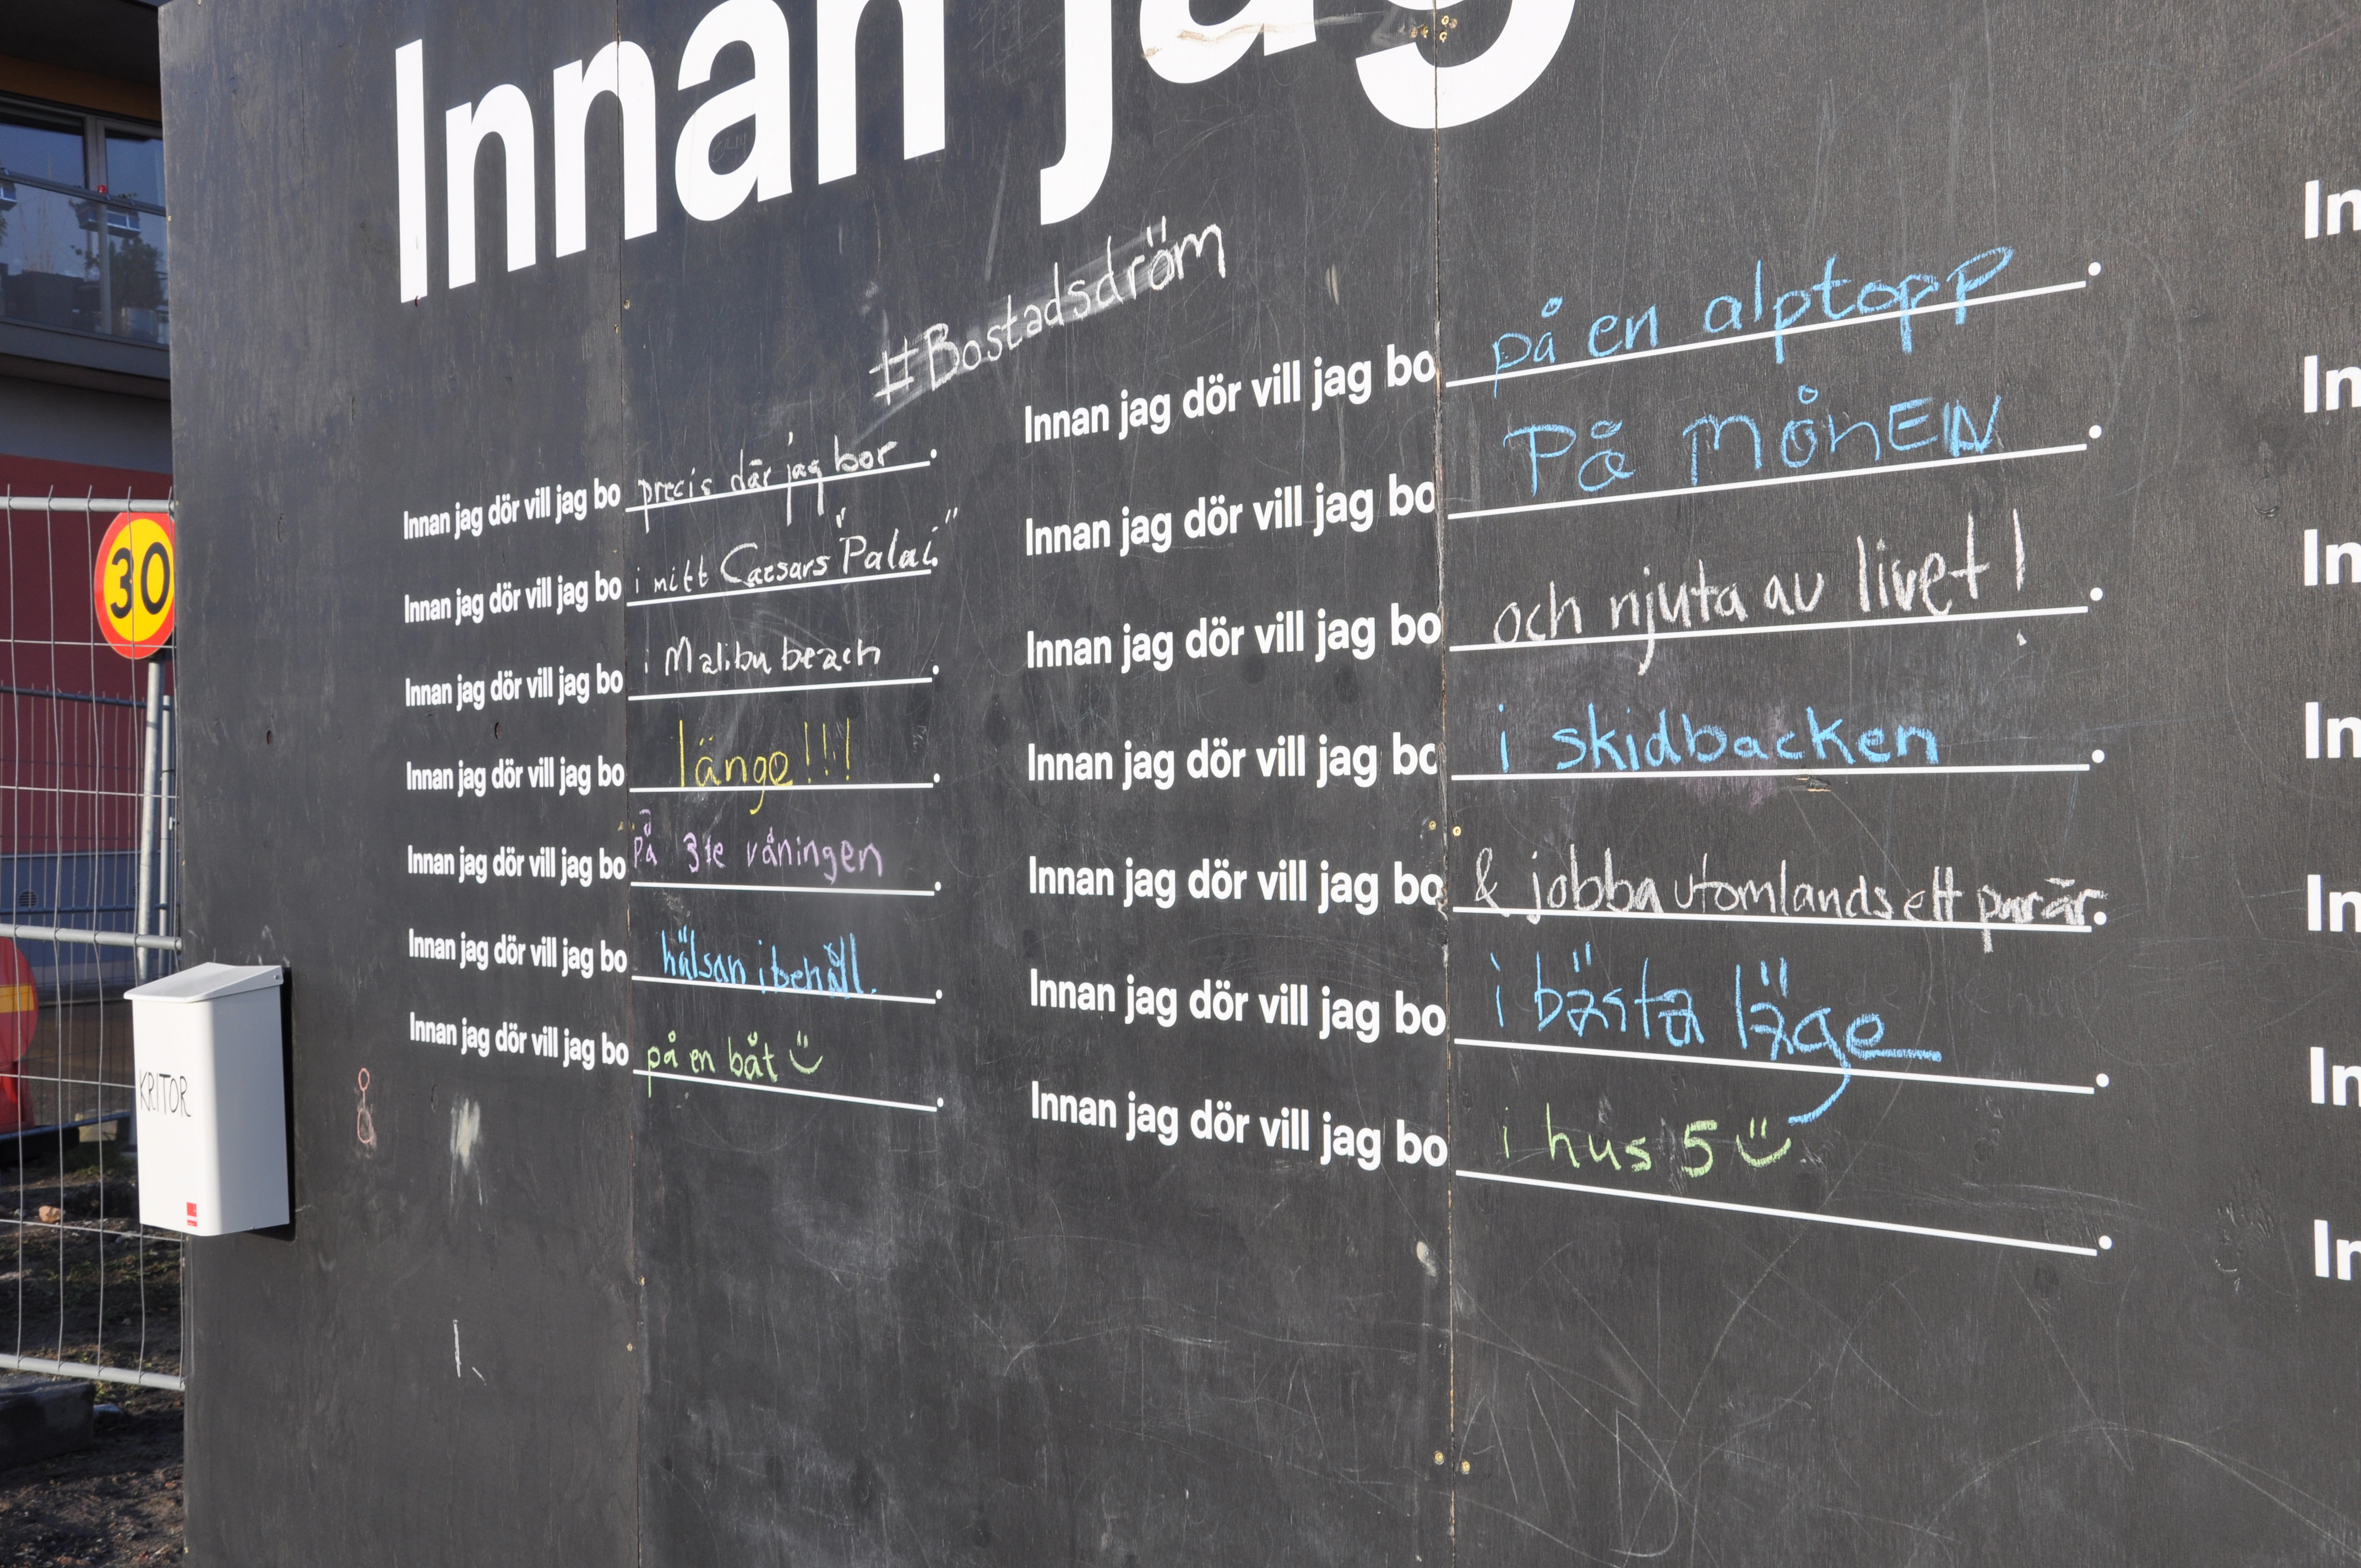 Innan jag
#Bostadsdröm
Innan jag dör vill jag bo precis där jag bor.
Innan jag dör vill jag bo i mitt Caesars "Palai".
Innan jag dör vill jag bo i Malibu beach.
Innan jag dör vill jag bo länge!!!.
Innan jag dör vill jag bo på 3te våningen.
Innan jag dör vill jag bo hälsan i behåll..
Innan jag dör vill jag bo på en båt.
Innan jag dör vill jag bo på en alptopp.
Innan jag dör vill jag bo På MånEN.
Innan jag dör vill jag bo och njuta av livet!.
Innan jag dör vill jag bo i skidbacken.
Innan jag dör vill jag bo & jobba utomlands ett par år.
Innan jag dör vill jag bo i bästa läge.
Innan jag dör vill jag bo i hus 5.
In
In
In
In
In
In
In
30
KRITOR